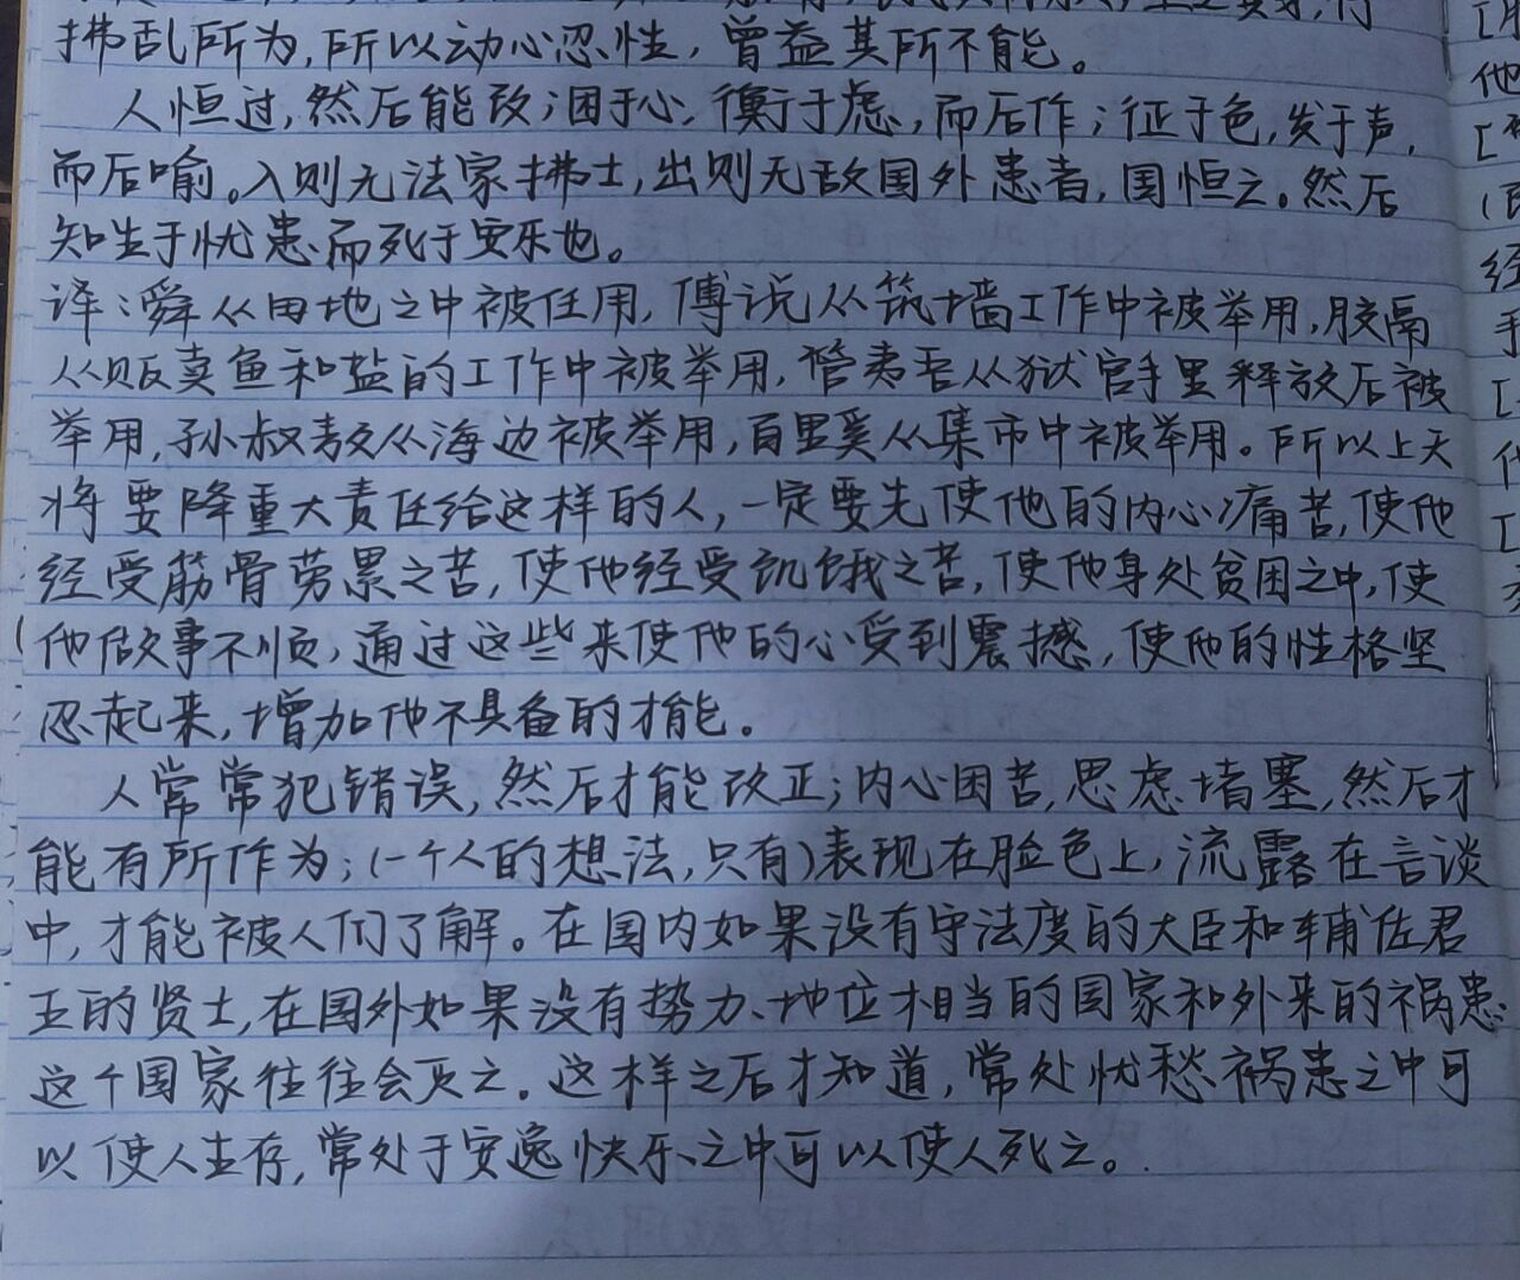 拂乱所为,所以动心忍性,曾益其所不能。
人恒过,然后能改;困于心,衡于虑,而后作;征于色,发于声,
而后喻。入则无法家拂士,出则无敌国外患者,国恒亡。然后
知生于忧患、而死于安乐也。
译:舜从田地之中被任用,傅说从筑墙工作中被举用,胶鬲
从贩卖鱼和盐的工作中被举用,管夷吾从狱官手里释放后被
举用,孙叔敖从海边被举用,百里奚从集市中被举用。所以上天
将要降重大责任给这样的人,一定要先使他的内心痛苦,使他
经受筋骨劳累之苦,使他经受饥饿之苦,使他身处贫困之中,使
他做事不顺,通过这些来使他的心受到震撼,使他的性格坚
忍起来,增加他不具备的才能。
人常常犯错误,然后才能改正;内心困苦,思虑堵塞,然后才
能有所作为;(一个人的想法,只有)表现在脸色上,流露在言谈
中,才能被人们了解。在国内如果没有守法度的大臣和辅佐君
王的贤士,在国外如果没有势力、地位相当的国家和外来的祸患、
这个国家往往会灭亡。这样之后才知道,常处忧愁、祸患之中可
以使人生存,常处于安逸快乐、之中可以使人死亡。